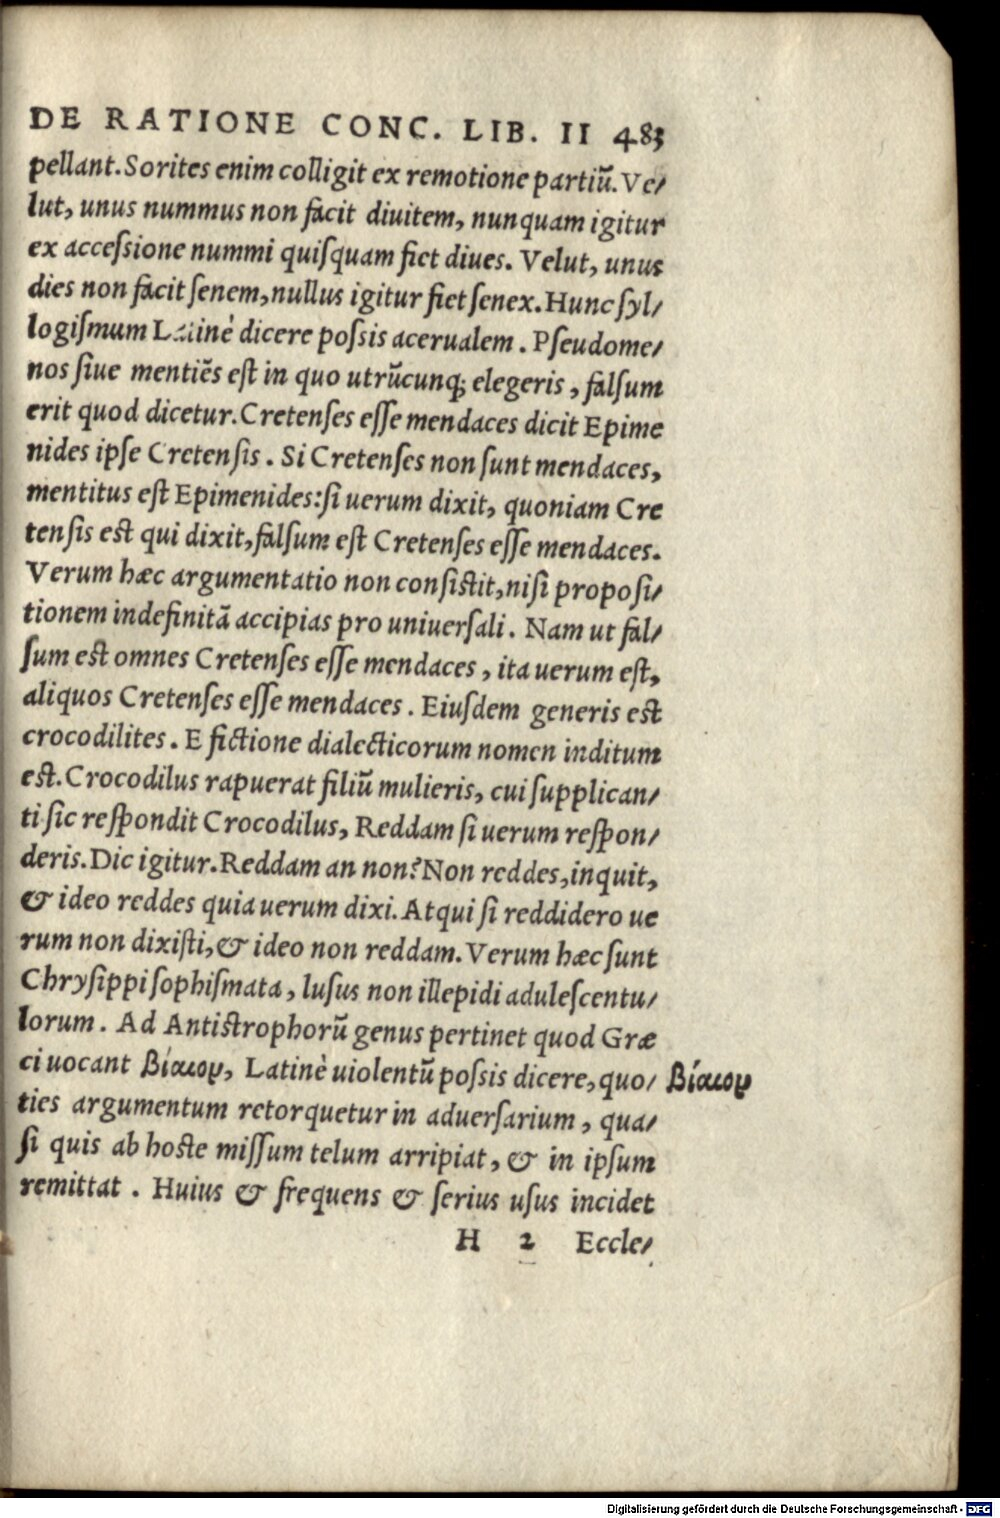 DE RATIONE CONC. LIB. II 483
pellant. Sorites enim colligit ex remotione partiũ. Ve/
lut, unus nummus non facit diuitem, nunquam igitur
ex accessione nummi quisquam fiet diues. Velut, unus
dies non facit senem, nullus igitur fiet senex. Hunc syl/
logismum Latinè dicere possis aceruale­m. Pseudome/
nos siue mentiẽs est in quo utrũcunq; elegeris, falsum
erit quod dicetur. Cretenses esse mendaces dicit Epime
nides ipse Cretensis. Si Cretenses non sunt mendaces,
mentitus est Epimenides: si uerum dixit, quoniam Cre
tensis est qui dixit, falsum est Cretenses esse mendaces.
Verum hæc argumentatio non consistit, nisi proposi/
tionem indefinitã accipias pro uniuersali. Nam ut fal/
sum est omnes Cretenses esse mendaces, ita uerum est,
aliquos Cretenses esse mendaces. Eiusdem generis est
crocodilites. E fictione dialecticorum nomen inditum
est. Crocodilus rapuerat filiũ mulieris, cui supplican/
ti sic respondit Crocodilus, Reddam si uerum respon/
deris. Dic igitur. Reddam an non? Non reddes, inquit,
& ideo reddes quia uerum dixi. Atqui si reddidero ue
rum non dixisti, & ideo non reddam. Verum hæc sunt
Chrysippi sophismata, lusus non illepidi adulescentu/
lorum. Ad Antistrophorũ genus pertinet quod Græ
ci uocant βίαιον, Latinè uiolentũ possis dicere, quo/ βίαιον
ties argumentum retorquetur in aduersarium, qua/
si quis ab hoste missum telum arripiat, & in ipsum
remittat. Huius & frequens & serius usus incidet
H 2 Eccle/
Digitalisierung gefördert durch die Deutsche Forschungsgemeinschaft - DFG